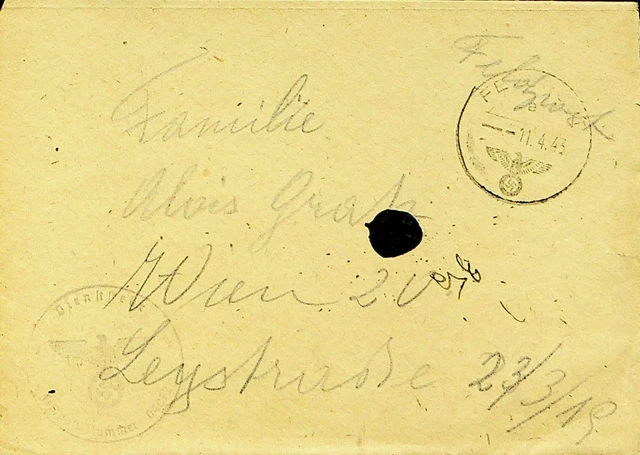 Feldpost
FELDPOST
11.4.43
Familie
Alois Gratz
Wien 20
Leystraße 23/3/19
Dienststelle